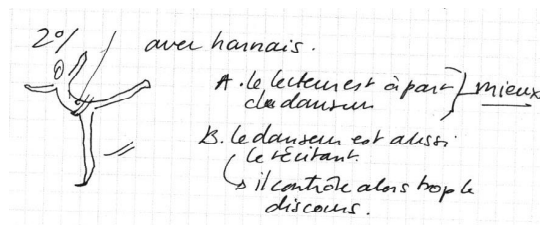 2°/ avec harnais.
A. le lecteur est à part } mieux
du danseur
B. le danseur est aussi
le récitant.
↳ il contrôle alors trop le
discours.